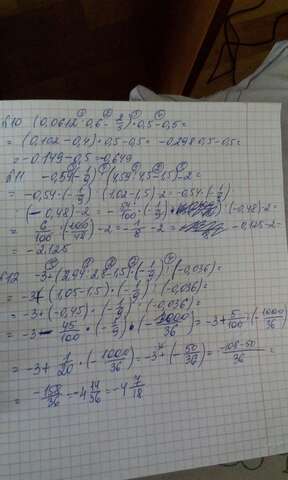 №10 (0,0612:0,6-2/5)·0,5-0,5=
= (0,102-0,4)·0,5-0,5= -0,298·0,5-0,5=
= -0,149-0,5=-0,649
№11 -0,54·(-1/9):(4,59:4,5-1,5)-2=
= -0,54·(-1/9):(1,02-1,5)-2=-0,54·(-1/9):
:(-0,48)-2=-54/100·(-1/9):(-0,48)-2=
= 6/100·(-100/48)-2=-1/8-2= -0,125-2=
= -2,125
№12 -3-(2,94:2,8-1,5)·(-1/9):(-0,036)=
= -3-(1,05-1,5)·(-1/9):(-0,036)=
= -3-(-0,45)·(-1/9):(-0,036)=
= -3-45/100·(-1/9)·(-1000/36)=-3+5/100·(-1000/36)
= -3+1/20·(-1000/36)=-3+(-50/36)=-108-50/36=
= -158/36=-4 14/36=-4 7/18